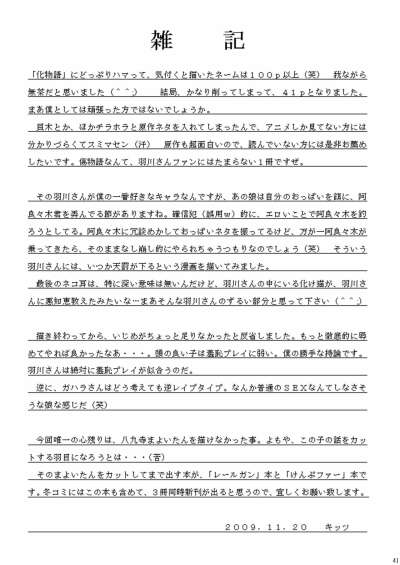 雑 記
「化物語」にどっぷりハマって、気付くと描いたネームは100p以上(笑) 我ながら
無茶だと思いました(^^;) 結局、かなり削ってしまって、41pとなりました。
まあ僕としては頑張った方ではないでしょうか。
貝木とか、ほかチラホラと原作ネタを入れてしまったんで、アニメしか見てない方には
分かりづらくてスミマセン(汗) 原作も超面白いので、読んでいない方には是非お薦め
したいです。傷物語なんて、羽川さんファンにはたまらない1冊ですぜ。
その羽川さんが僕の一番好きなキャラなんですが、あの娘は自分のおっぱいを餌に、阿
良々木君を弄んでる節がありますね。確信犯(誤用w)的に、エロいことで阿良々木を釣
ろうとしてる。阿良々木に冗談めかしておっぱいネタを振ってるけど、万が一阿良々木が
乗ってきたら、そのままなし崩し的にやられちゃうつもりなのでしょう(笑) そういう
羽川さんには、いつか天罰が下るという漫画を描いてみました。
最後のネコ耳は、特に深い意味は無いんだけど、羽川さんの中にいる化け猫が、羽川さ
んに悪知恵教えたみたいな…まあそんな羽川さんのずるい部分と思って下さい(^^;)
描き終わってから、いじめがちょっと足りなかったと反省しました。もっと徹底的に辱
めてやれば良かったなあ・・・。頭の良い子は羞恥プレイに弱い。僕の勝手な持論です。
羽川さんは絶対に羞恥プレイが似合うのだ。
逆に、ガハラさんはどう考えても逆レイプタイプ。なんか普通のSEXなんてしなさそ
うな娘な感じだ(笑)
今回唯一の心残りは、八九寺まよいたんを描けなかった事。よもや、この子の話をカッ
トする羽目になろうとは・・・(苦)
そのまよいたんをカットしてまで出す本が、「レールガン」本と「けんぷファー」本で
す。冬コミにはこの本も含めて、3冊同時新刊が出ると思うので、宜しくお願い致します。
2009.11.20 キッツ
41